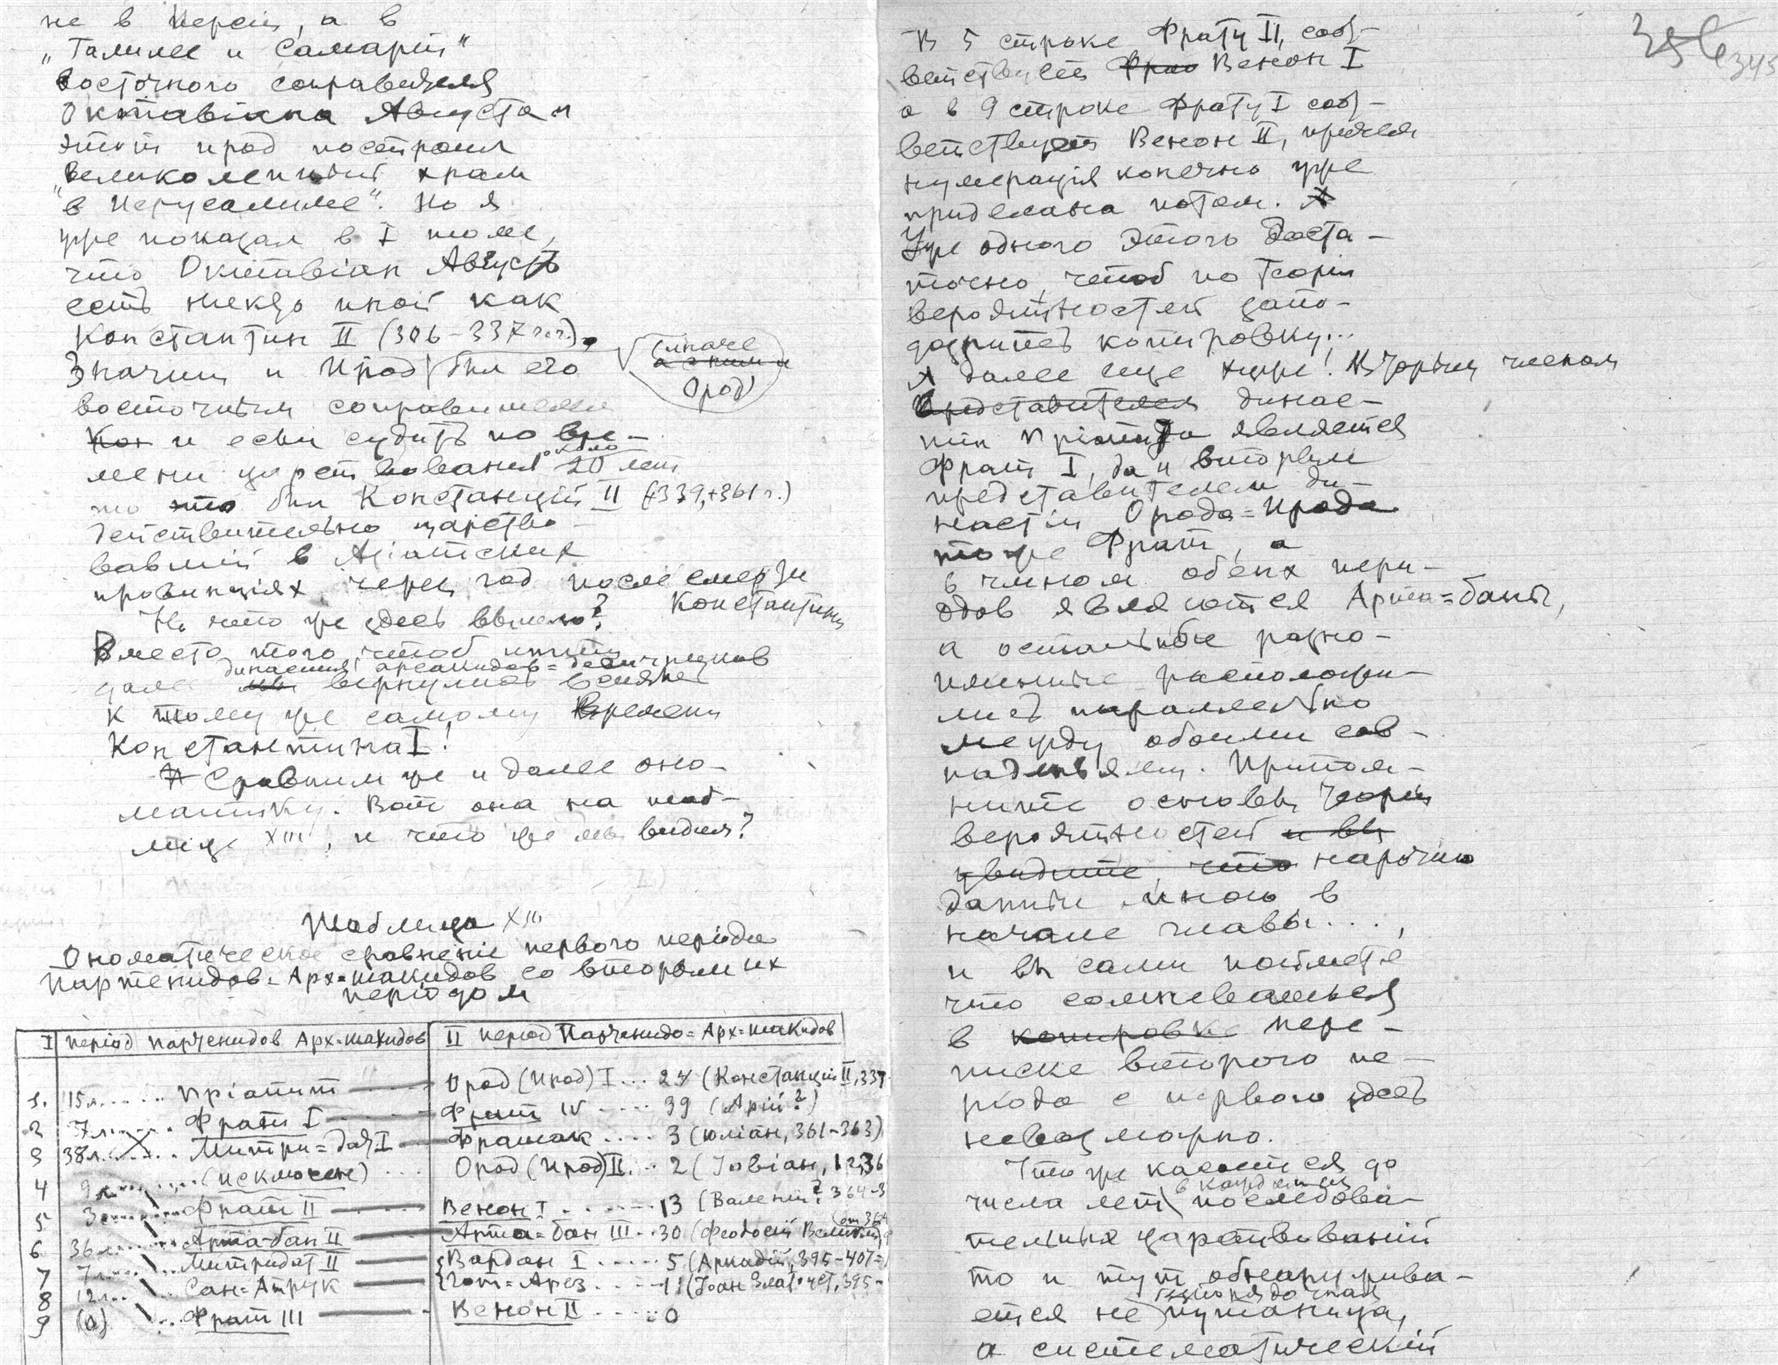 не в Персіи, а в
„Галилее и Самаріи"
восточного соправителя
Октавіана Августа и
этот ирод построил
великолепный храм
"в Иерусалиме". Но я
уже показал в I томе,
что Октавіан Августъ
есть никто иной как
Константин II (306-337 г.г.).
Значит и Ирод был его
(иначе
а с ним и
Ород)
восточным соправителем
Кон и если судить по вре-
мени царствования около 20 лет
то это был Констанцій II (339, +361 г.)
действительно царство-
вавшій в Азіатских
провинціях через год после смерти
Константина
Но что же здесь вышло?
Вместо того чтоб идти
династия арсакидов =
далее мы вернулись вспять
к тому же самому времени
Константина I!
А Сравним же и далее оно-
матику. Вот она на таб-
лице XIII, и что же мы видим?
Таблица XIII
Ономатическое сравненіе первого періода
Партенидов = Арх=шакидов со вторым их
періодом
I період Парѳенидов Арх=шакидов | II період Парѳенидо = Арх=шакидов
1. 15 л...... Пріапат — Ород (Ирод) I ... 24 (Констанцій II, 339-
2 7 л...... Фраат I — Фраат IV ..... 39 (Арій?)
3 38 л...... Митри=дат I — Фраатак .... 3 (Юліан, 361-363)
4 9 л...... (исключен) ... Ород (Ирод) II... 2 (Іовіан,
5 3 ...... Фраат II — Вонон I ...... 13 (Валент? 364-3
6 36 л.... Арта-бан II — Арта=бан III .. 30 (Феодосій Великій
7 7 л... Митридат II — Вардан I ..... 5 (Аркадій, 395-407=
8 12 л.. Сан=Атрук — Гот=Арез .... 11 (Іоан Златоуст, 395-
9 (0) ... Фраат III — Вонон II ..... 0
356 345
В 5 строке Фрату II, соот-
ветствует Фрао Вонон I
а в 9 строке Фрату I соот-
ветствует Вонон II, причем
нумерація конечно уже
приделана потом. А
Уже одного этого доста-
точно, чтоб по теоріи
вероятностей запо-
дозрить копировку...
А далее еще хуже! Вторым членом
представителем динас-
тіи Пріапата является
Фраат I, да и вторым
представителем ди-
настіи Орода=Ирода
тоже Фраат, а
в числом обеих пери-
одов являются Арта=баны,
а остальные разно-
именные расположи-
лись параллельно
между обоими сов-
паденьями. Припом-
ните основы теоріи
вероятностей и вы
увидите, что нарочно
данные мною в
начале главы....,
и вы сами поймете
что сомневаться
в копировке пере-
писке второго пе-
ріода с первого здесь
невозможно.
Что же касается до
числа лет в каждом из последова-
тельных царствований
то и тут обнаружива-
ется не путаница,
а систематический